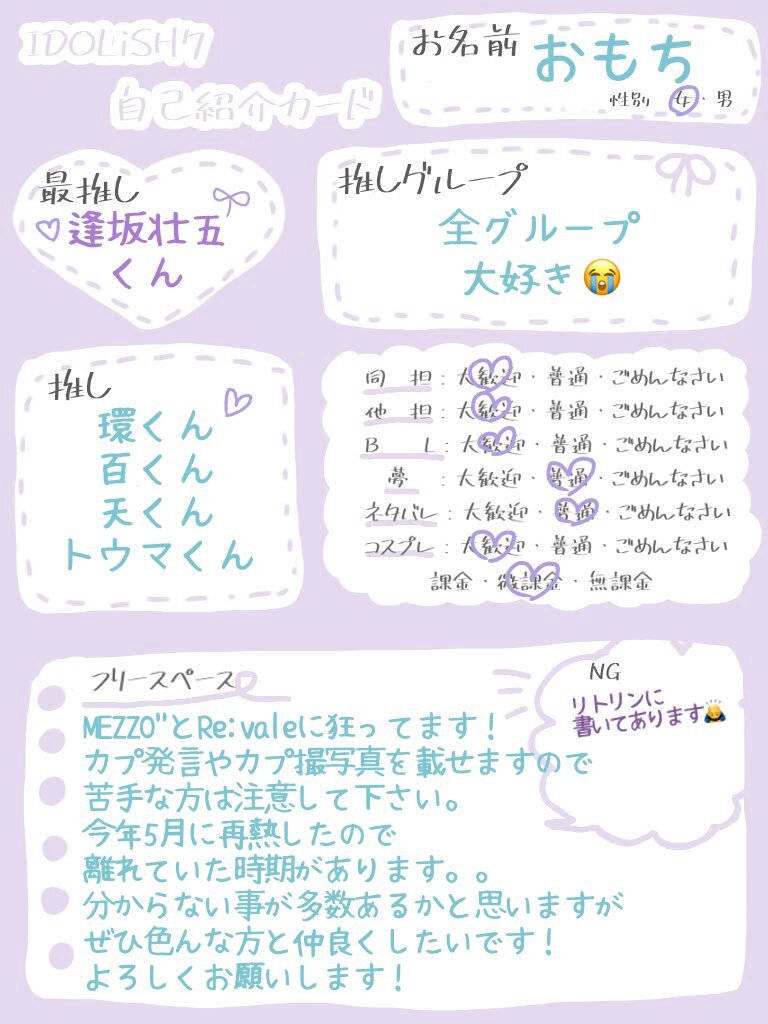 IDOLiSH7
自己紹介カード
お名前 おもち
性別 女・男
最推し
逢坂壮五
くん
推しグループ
全グループ
大好き😭
推し
環くん
百くん
天くん
トウマくん
同担:大歓迎・普通・ごめんなさい
他担:大歓迎・普通・ごめんなさい
BL:大歓迎・普通・ごめんなさい
夢:大歓迎・普通・ごめんなさい
ネタバレ:大歓迎・普通・ごめんなさい
コスプレ:大歓迎・普通・ごめんなさい
課金・微課金・無課金
フリースペース
MEZZO"とRe:valeに狂ってます!
カプ発言やカプ撮写真を載せますので
苦手な方は注意して下さい。
今年5月に再熱したので
離れていた時期があります。。
分からない事が多数あるかと思いますが
ぜひ色んな方と仲良くしたいです!
よろしくお願いします!
NG
リトリンに
書いてあります🙇